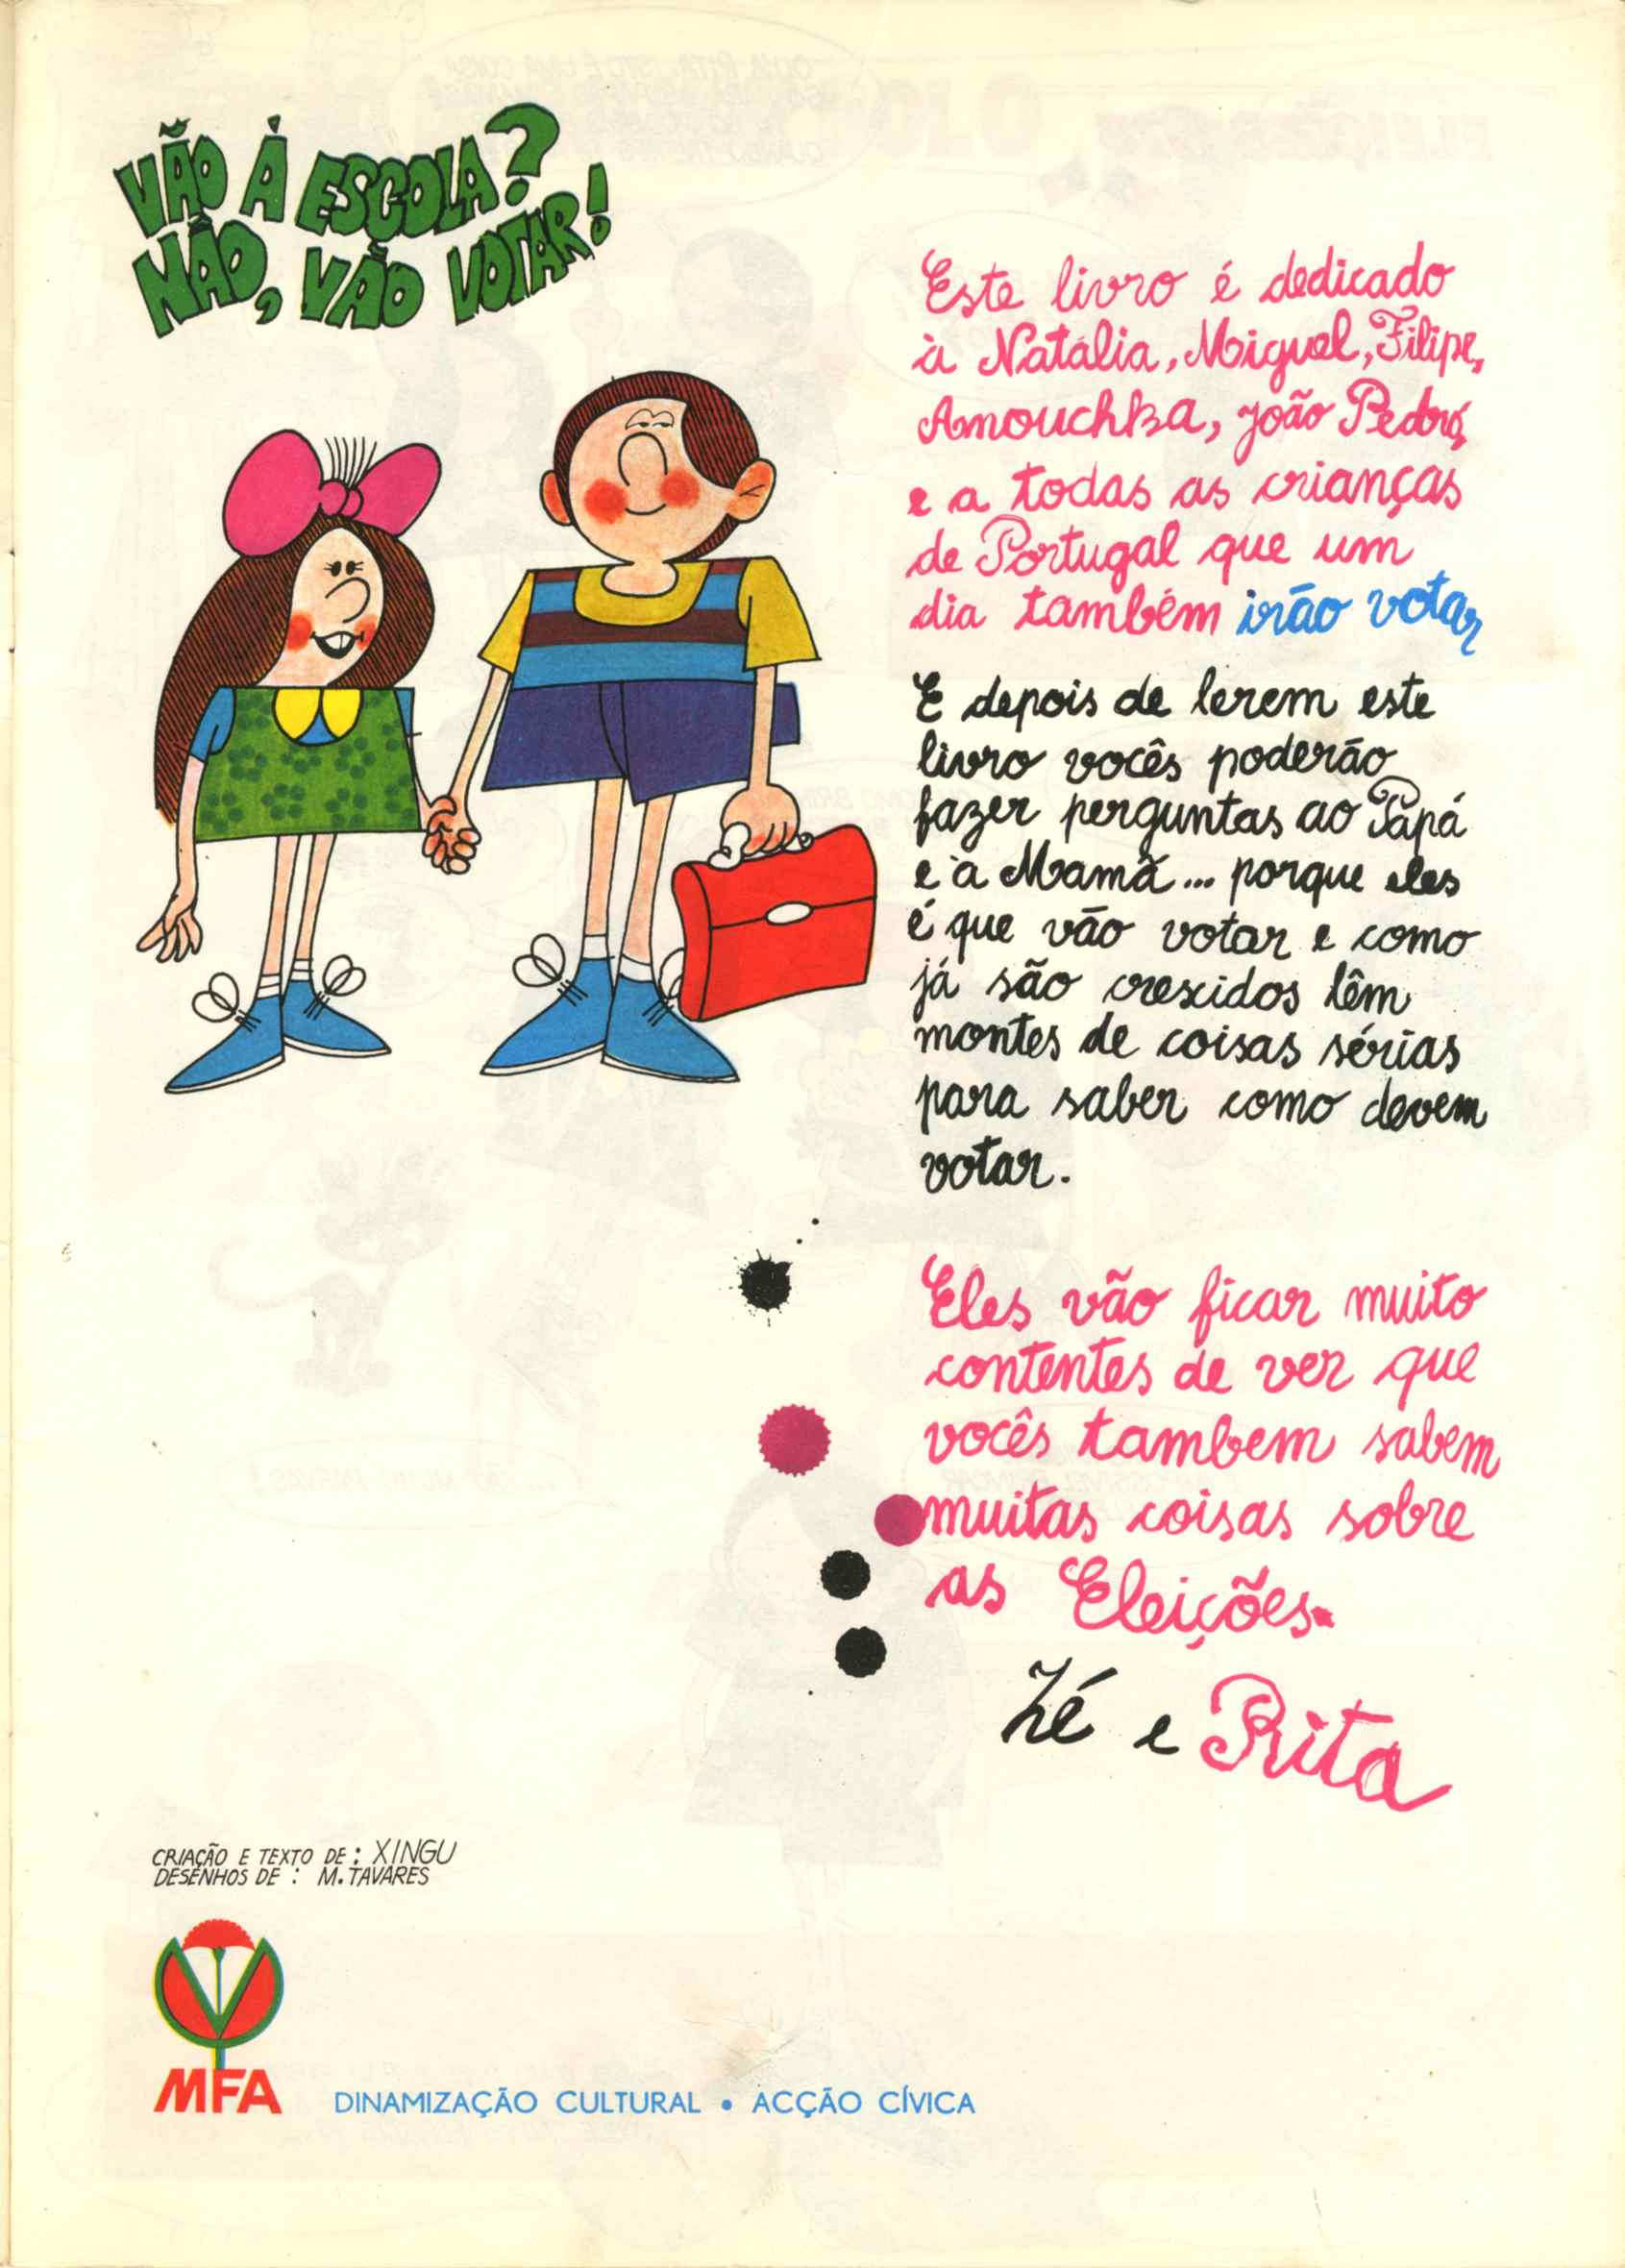 VÃO À ESCOLA?
NÃO, VÃO VOTAR!
Este livro é dedicado
à Natália, Miguel, Filipe,
Anouchka, João Pedro,
e a todas as crianças
de Portugal que um
dia também irão votar
E depois de lerem este
livro vocês poderão
fazer perguntas ao Papá
e à Mamã... porque eles
é que vão votar e como
já são crescidos lêm
montes de coisas sérias
para saber como devem
votar.
Eles vão ficar muito
contentes de ver que
vocês tambem sabem
muitas coisas sobre
as Eleições.
Zé e Rita
CRIAÇÃO E TEXTO DE: XINGU
DESENHOS DE: M. TAVARES
MFA
DINAMIZAÇÃO CULTURAL • ACÇÃO CÍVICA